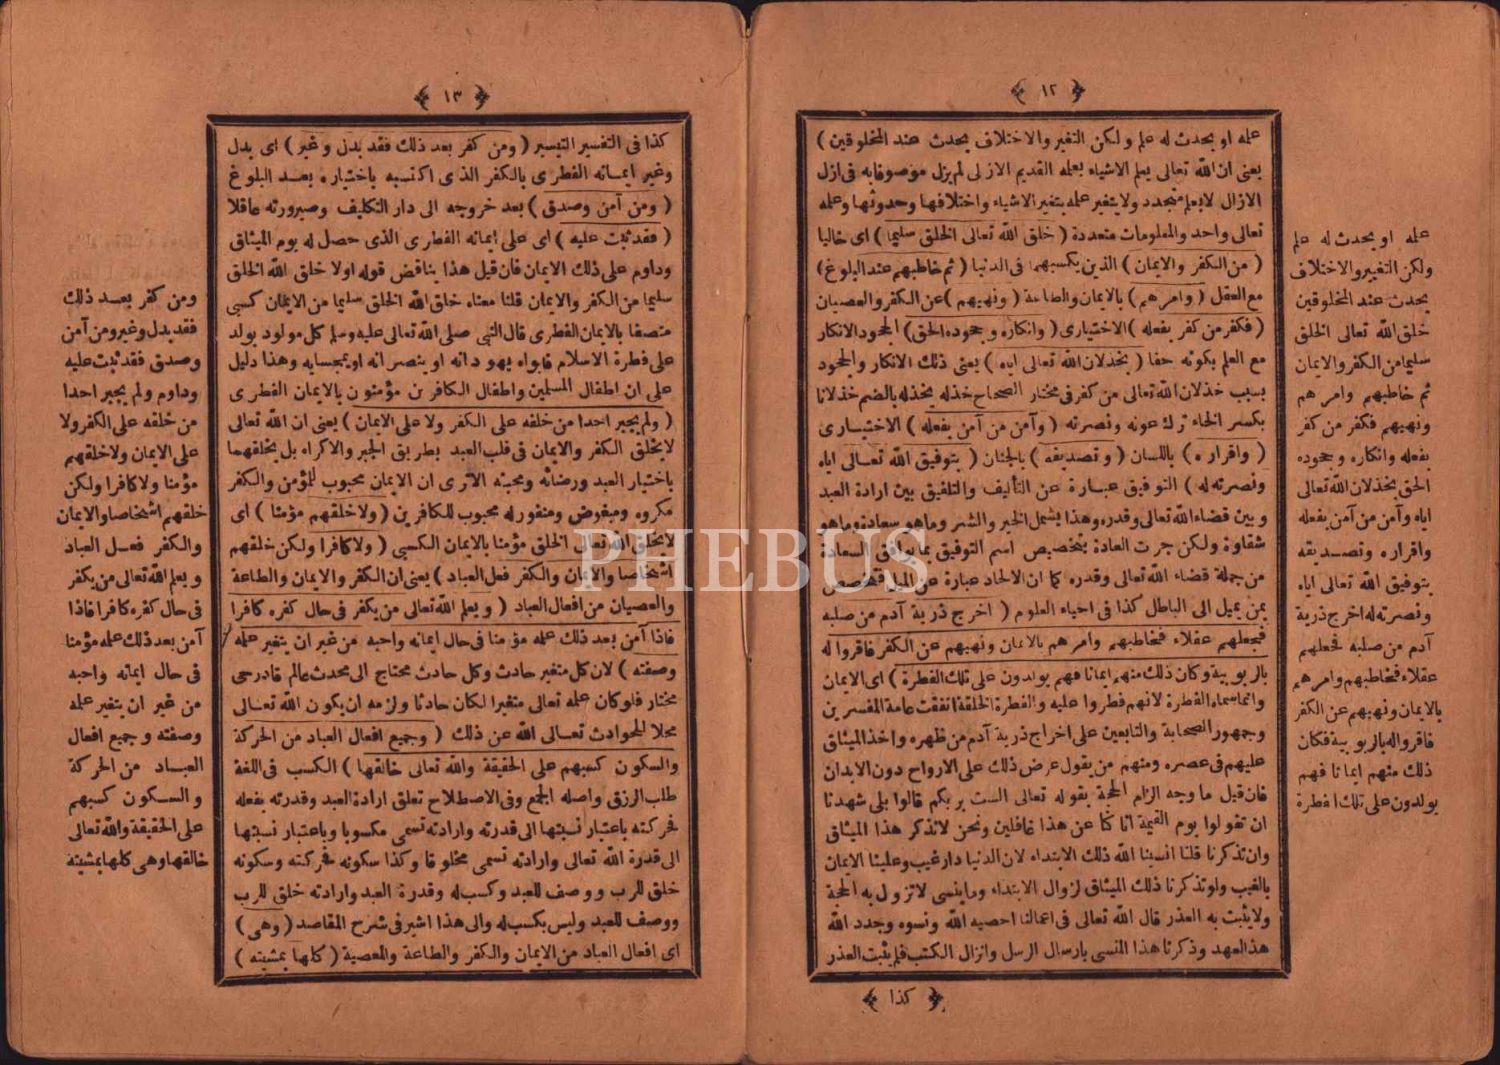 ﴿ ١٢ ﴾
علمه او يحدث له علم ولكن التغير والاختلاف يحدث عند المخلوقين )
يعنى ان الله تعالى يعلم الاشياء بعلمه القديم الازلى لم يزل موصوفا به فى ازل
الازال لا بعلم متجدد ولا يتغير علمه بتغير الاشياء واختلافها وحدوثها وعلمه
تعالى واحد والمعلومات متعددة ( خلق الله تعالى الخلق سليما ) اى خاليا
( من الكفر والايمان ) الذين يكسبهما فى الدنيا ( ثم خاطبهم عند البلوغ )
مع العقل ( وامرهم ) بالايمان والطاعة ( ونهيهم ) عن الكفر والعصيان
( فكفر من كفر بفعله ) الاختيارى ( وانكاره وجحوده الحق ) الجحود الانكار
مع العلم بكونه حقا ( بخذلان الله تعالى اياه ) يعنى ذلك الانكار والجحود
بسبب خذلان الله تعالى من كفر فى مختار الصحاح خذله يخذله بالضم خذلانا
بكسر الخاء ترك عونه ونصرته ( وآمن من آمن بفعله ) الاختيارى
( واقراره ) باللسان ( وتصديقه ) بالجنان ( بتوفيق الله تعالى اياه
ونصرته له ) التوفيق عبارة عن التأليف والتلفيق بين ارادة العبد
وبين قضاء الله تعالى وقدره وهذا يشمل الخير والشر وماهو سعادة وماهو
شقاوة ولكن جرت العادة بتخصيص اسم التوفيق بما يوافق السعادة
من جملة قضاء الله تعالى وقدره كما ان الالحاد عبارة عن الميل فتخصص
بمن يميل الى الباطل كذا فى احياء العلوم ( اخرج ذرية آدم من صلبه
فجعلهم عقلاء فخاطبهم وامرهم بالايمان ونهيهم عن الكفر فاقروا له
بالربوبية وكان ذلك منهم ايمانا فهم يولدون على تلك الفطرة ) اى الايمان
وانما سماه الفطرة لانهم فطروا عليه والفطرة الخلقة اتفقت عامة المفسرين
وجمهور الصحابة والتابعين على اخراج ذرية آدم من ظهره واخذ الميثاق
عليهم فى عصره ومنهم من يقول عرض ذلك على الارواح دون الابدان
فان قيل ما وجه الزام الحجة بقوله تعالى الست بربكم قالوا بلى شهدنا
ان تقولوا يوم القيمة انا كنا عن هذا غافلين ونحن لانذكر هذا الميثاق
وان تذكرنا قلنا انسينا الله ذلك الابتداء لان الدنيا دار غيب وعلينا الايمان
بالغيب ولو تذكرنا ذلك الميثاق لزوال الابتداء وما ينسى لا تزول به الحجة
ولا يثبت به العذر قال الله تعالى فى اعمالنا احصيه الله ونسوه وجدد الله
هذا العهد وذكرنا هذا المنسى بارسال الرسل وانزال الكتب فلم يثبت العذر
﴿ كذا ﴾
علمه او يحدث له علم
ولكن التغير والاختلاف
يحدث عند المخلوقين
خلق الله تعالى الخلق
سليما من الكفر والايمان
ثم خاطبهم وامرهم
ونهيهم فكفر من كفر
بفعله وانكاره وجحوده
الحق بخذلان الله تعالى
اياه وآمن من آمن بفعله
واقراره وتصديقه
بتوفيق الله تعالى اياه
ونصرته له اخرج ذرية
آدم من صلبه فجعلهم
عقلاء فخاطبهم وامرهم
بالايمان ونهيهم عن الكفر
فاقروا له بالربوبية فكان
ذلك منهم ايمانا فهم
يولدون على تلك الفطرة
﴿ ١٣ ﴾
كذا فى التفسير التيسير ( ومن كفر بعد ذلك فقد بدل وغير ) اى بدل
وغير ايمانه الفطرى بالكفر الذى اكتسبه باختياره بعد البلوغ
( ومن آمن وصدق ) بعد خروجه الى دار التكليف وصيرورته عاقلا
( فقد ثبت عليه ) اى على ايمانه الفطرى الذى حصل له يوم الميثاق
وداوم على ذلك الايمان فان قيل هذا يناقض قوله اولا خلق الله الخلق
سليما من الكفر والايمان قلنا معناه خلق الله الخلق سليما من الايمان كسبى
متصفا بالايمان الفطرى قال النبى صلى الله تعالى عليه وسلم كل مولود يولد
على فطرة الاسلام فابواه يهودانه او ينصرانه او يمجسانه وهذا دليل
على ان اطفال المسلمين واطفال الكافرين مؤمنون بالايمان الفطرى
( ولم يجبر احدا من خلقه على الكفر ولا على الايمان ) يعنى ان الله تعالى
لا يخلق الكفر والايمان فى قلب العبد بطريق الجبر والاكراه بل يخلقهما
باختيار العبد ورضائه ومحبته الا ترى ان الايمان محبوب للمؤمن والكفر
مكروه ومبغوض ومنفور له محبوب للكافرين ( ولا خلقهم مؤمنا ) اى
لا يخلق الله تعالى الخلق مؤمنا بالايمان الكسبى ( ولا كافرا ولكن خلقهم
اشخاصا والايمان والكفر فعل العباد ) يعنى ان الكفر والايمان والطاعة
والعصيان من افعال العباد ( ويعلم الله تعالى من يكفر فى حال كفره كافرا
فاذا آمن بعد ذلك علمه مؤمنا فى حال ايمانه واحبه من غير ان يتغير علمه
وصفته ) لان كل متغير حادث وكل حادث محتاج الى محدث عالم قادر حى
مختار فلو كان علمه تعالى متغيرا لكان حادثا ولزمه ان يكون الله تعالى
محلا للحوادث تعالى الله عن ذلك ( وجميع افعال العباد من الحركة
والسكون كسبهم على الحقيقة والله تعالى خالقها ) الكسب فى اللغة
طلب الرزق واصله الجمع وفى الاصطلاح تعلق ارادة العبد وقدرته بفعله
فحركته باعتبار نسبتها الى قدرته وارادته تسمى مكسوبا وباعتبار نسبتها
الى قدرة الله تعالى وارادته تسمى مخلوقا وكذا سكونه فحركته وسكونه
خلق للرب ووصف للعبد وكسب له وقدرة العبد وارادته خلق للرب
ووصف للعبد وليس بكسب له والى هذا اشير فى شرح المقاصد ( وهى )
اى افعال العباد من الايمان والكفر والطاعة والمعصية ( كلها بمشيته )
ومن كفر بعد ذلك
فقد بدل وغير ومن آمن
وصدق فقد ثبت عليه
وداوم ولم يجبر احدا
من خلقه على الكفر ولا
على الايمان ولا خلقهم
مؤمنا ولا كافرا ولكن
خلقهم اشخاصا والايمان
والكفر فعل العباد
ويعلم الله تعالى من يكفر
فى حال كفره كافرا فاذا
آمن بعد ذلك علمه مؤمنا
فى حال ايمانه واحبه
من غير ان يتغير علمه
وصفته وجميع افعال
العباد من الحركة
والسكون كسبهم
على الحقيقة والله تعالى
خالقها وهى كلها بمشيته
PHEBUS